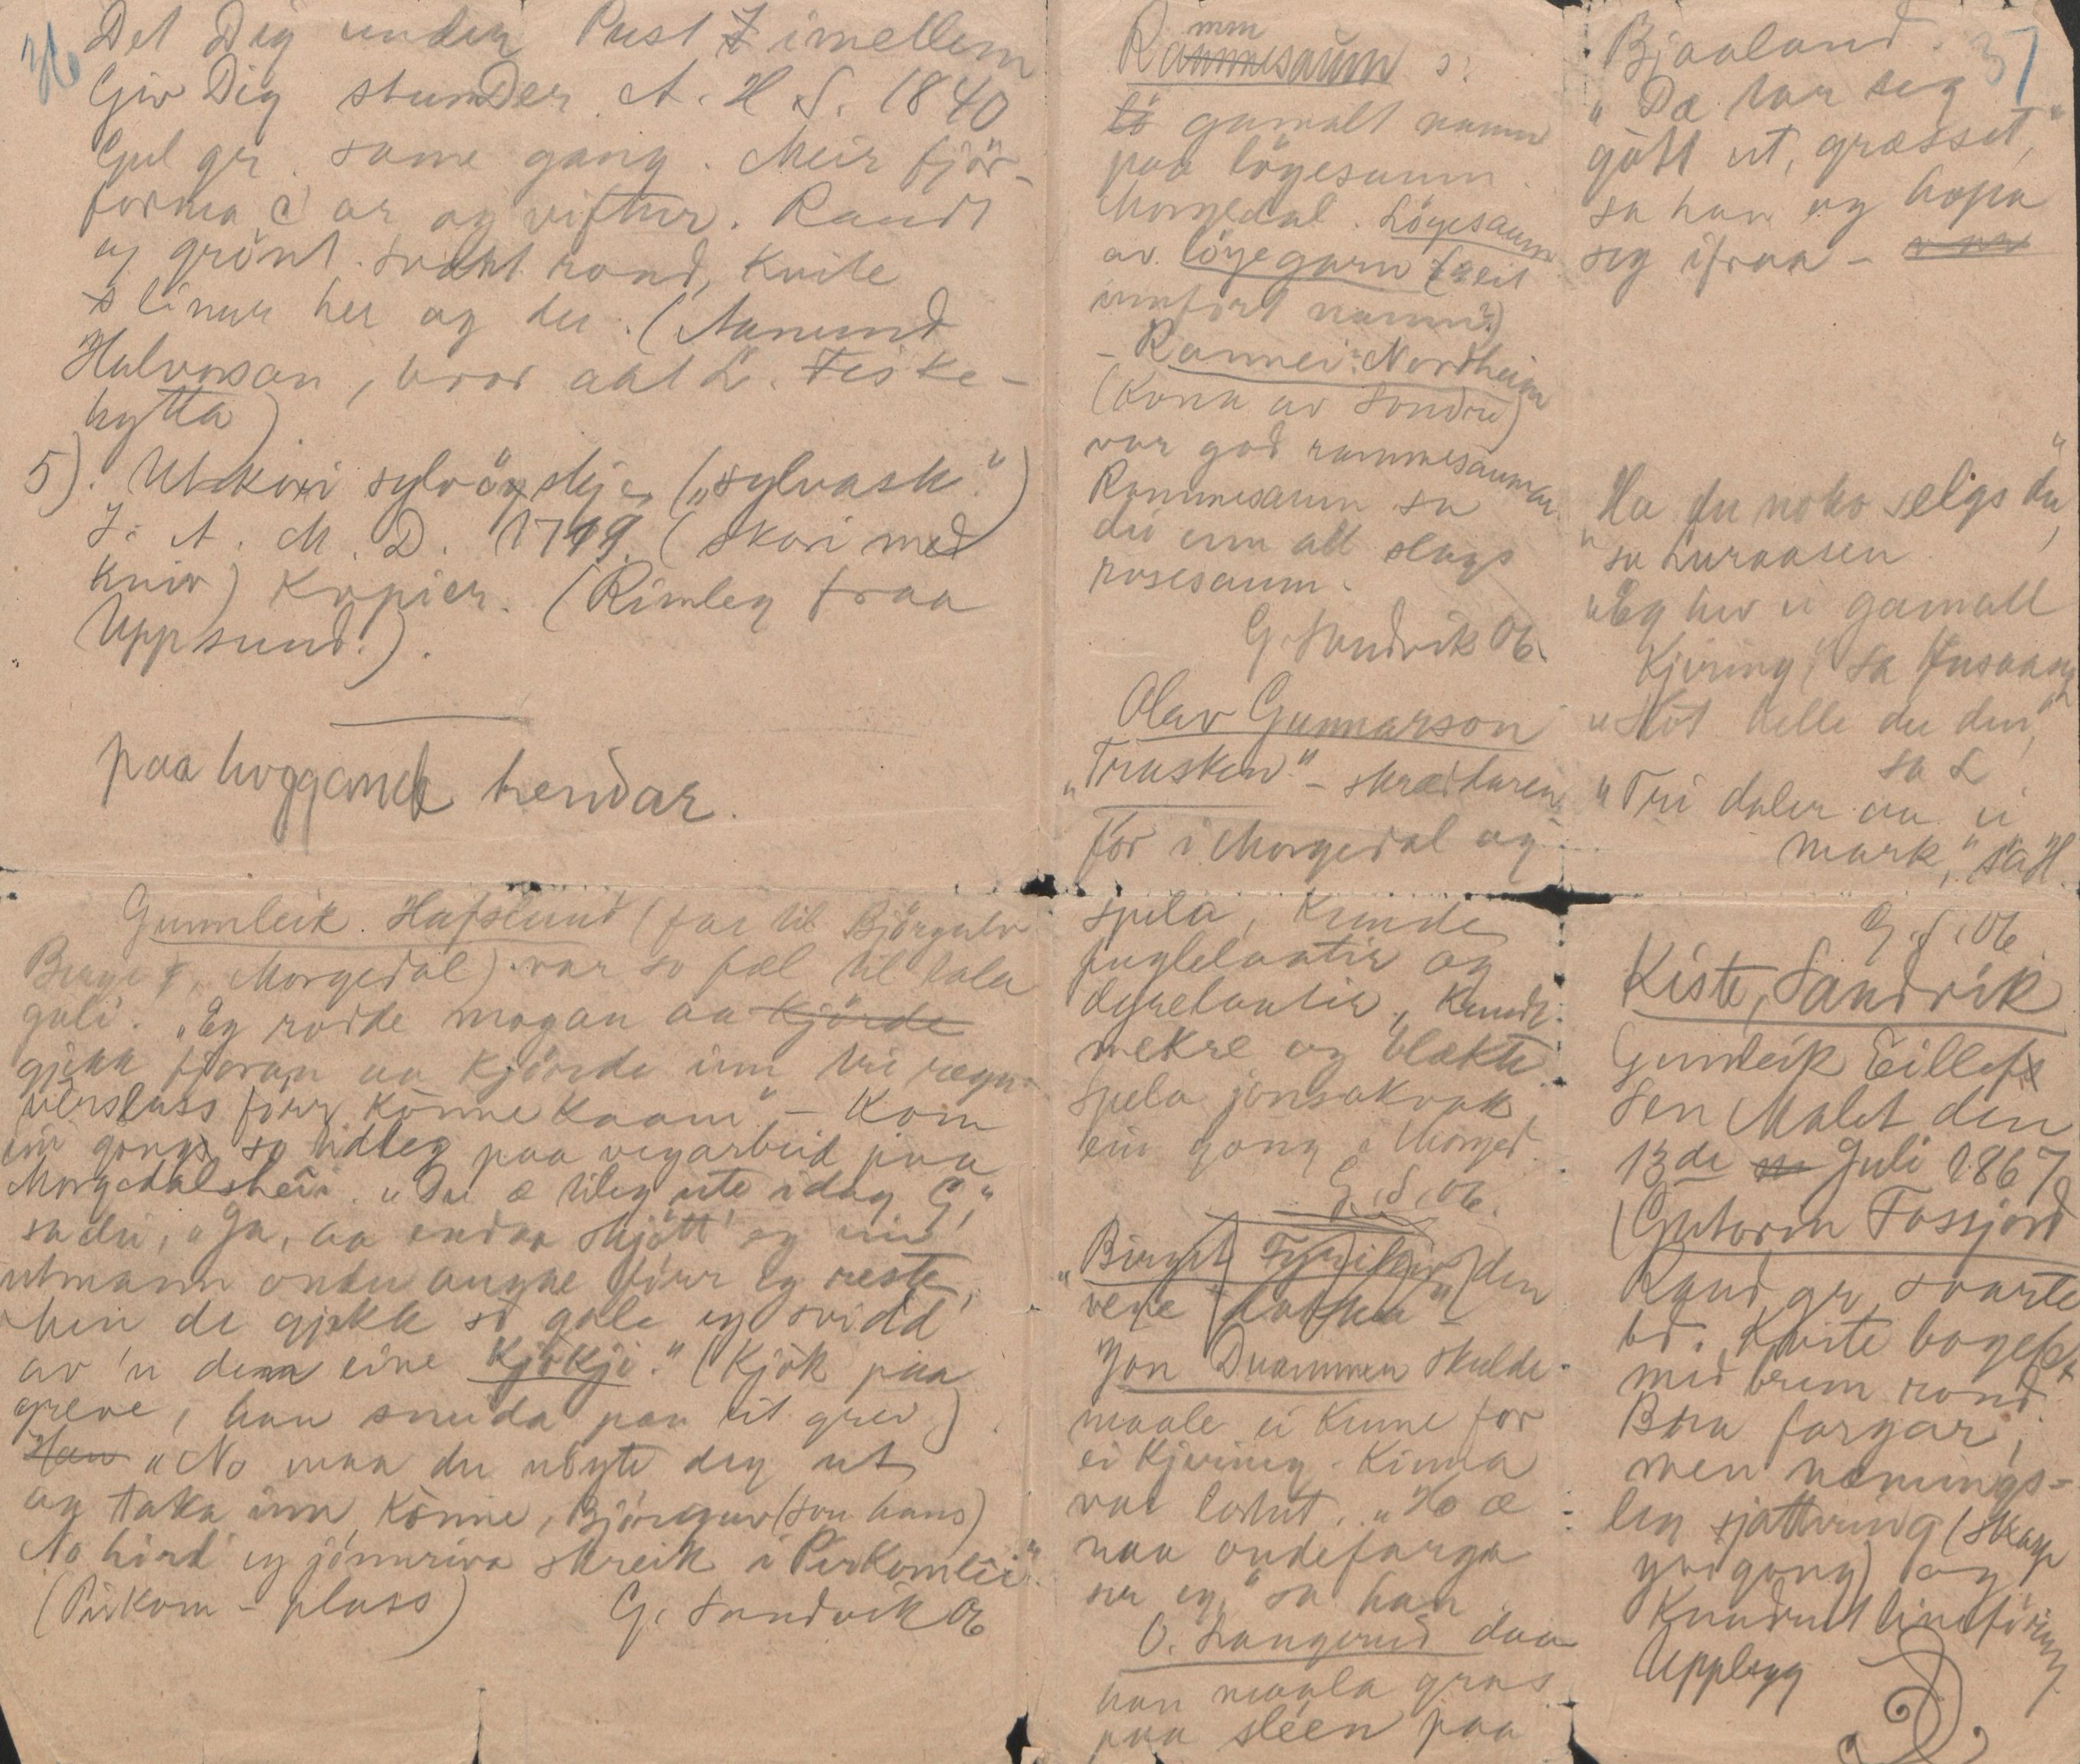 36
Det Dig under Pust imellem
Giv Dig stunder A. H S. 1840
Gul gr. same gang. Meir fjör-
forma C ar og viftur. Raudt
og grönt. svart rond, Kvite
linur her og der. (Aanund
Halvorson, bror aat L. Fiske-
hytta)
5). Utskori sylvöskje („sylvask")
I. A. M. D. 1799. (skori med
kniv) Kopier. (Rimleg fraa
Uppsund.).
paa hoggande hendar.
Gunnleik Hafslund (far til Björgulv
Berge, Morgedal) var so fæl til tala
gali. „Eg rodde mogan aa kjörde
gjekk foran aa Kjörde inn tri regn-
verslass förr Könne kaam" – Kom
ein gong so tidleg paa vegarbeid paa
Morgedalsheii. „Du æ tileg ute idag G,"
sa dei, „Ja, aa endaa skjött eg
utmann ondu augne förr eg reste,
hen de gjekk so gale eg svidd
av 'n denn eine Kjökji." (Kjök paa
greve, han snudda paa eit grev)
Han „No maa du nöyte deg ut
og taka inn Könne, Björguv (son hans)
No hörd eg jönnriva skreik i Pirkomlii"
(Pirkom – plass) G. Sandvik 06
mm
Rammesaum s:
gamalt namn
paa löyesaum
Morgedal. Löyesaum
av löyegarn (eit
innfört namn?)
– Rannei Nordheim
(Kona av Sondre)
var god rammesaumar.
Rammesaum sa
dei um all slags
rosesaum.
G. Sandvik 06.
Olav Gunnarson
„Trusken" – skræddaren
For i Morgedal og
spela, kunde
fuglelaatir og
dyrelaatir, kunde
mekre og blækte
Spela jonsokvak
ein gong i Morged.
G. S. 06.
„Birgit den
vene
Jon Duammen skulde
maale ei kinne for
ei Kjering. Kinna
var loshut. „Ho æ
naa ondefarga
ser eg," sa han.
O. Langerud daa
han maala gras
paa sleen paa
37
Bjaaland.
„Dæ tar seg
gött ut, græsset,"
sa han og hopa
seg ifraa –
Ha du noko seligs du,"
sa Luraasen
„Eg hev ei gamall
Kjering," sa Husaas
„Slöt helle du din,"
sa L
„Tri daler aa ei
mark," sa H.
G. S. 06
Kiste, Sandvik
Gunleik Eillef
sen Malet den
13de Juli 1867
(Guttorm Fossjord
Raud gr, svarte
bd. Kvite bogefelt
med brun rond.
Bra fargar,
men næmings-
leg sjattering (skarp
yvigong) og
Knudrut lineföring
Upplegg